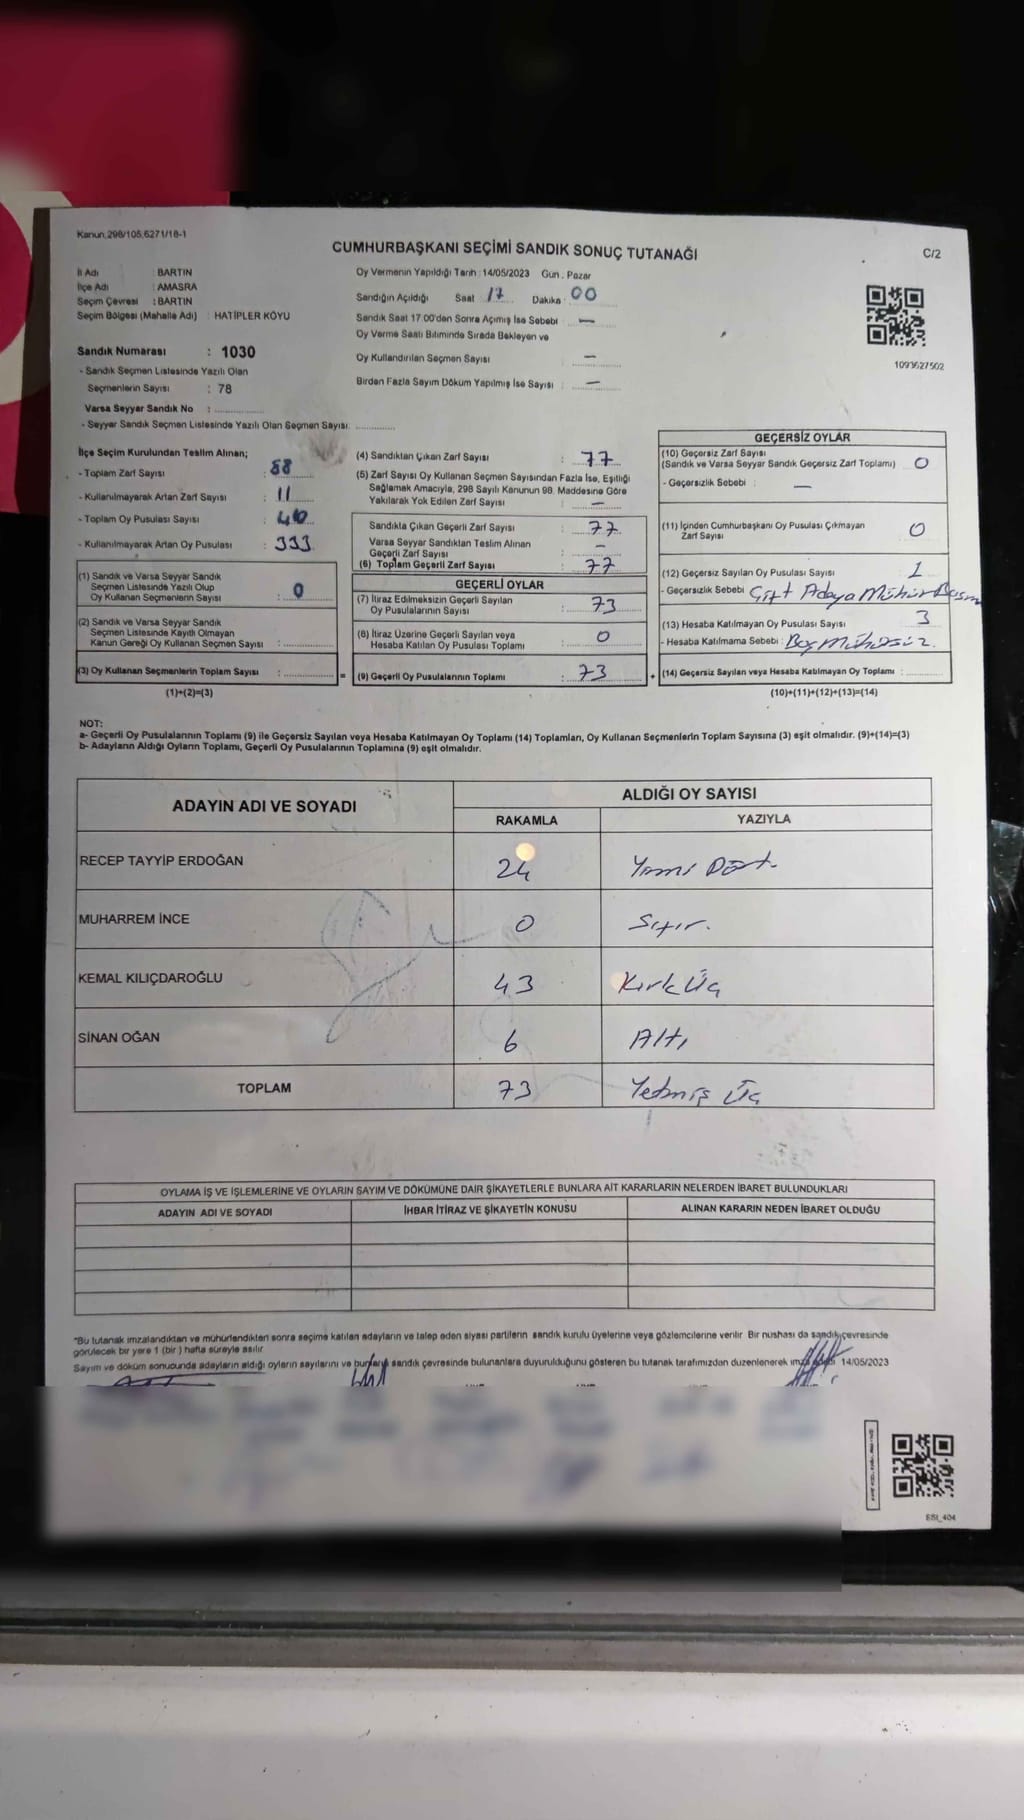 Kanun.298/105,6271/18-1
CUMHURBAŞKANI SEÇİMİ SANDIK SONUÇ TUTANAĞI
C/2
İl Adı : BARTIN
İlçe Adı : AMASRA
Seçim Çevresi : BARTIN
Seçim Bölgesi (Mahalle Adı) : HATİPLER KÖYÜ
Oy Vermenin Yapıldığı Tarih : 14/05/2023 Gün : Pazar
Sandığın Açıldığı Saat : 17 Dakika : 00
Sandık Saat 17.00'den Sonra Açımış İse Sebebi : —
Oy Verme Saati Bitiminde Sırada Bekleyen ve
Oy Kullandırılan Seçmen Sayısı : —
Birden Fazla Sayım Döküm Yapılmış İse Sayısı : —
1093627502
Sandık Numarası : 1030
- Sandık Seçmen Listesinde Yazılı Olan
Seçmenlerin Sayısı : 78
Varsa Seyyar Sandık No :
- Seyyar Sandık Seçmen Listesinde Yazılı Olan Seçmen Sayısı:
İlçe Seçim Kurulundan Teslim Alınan;
- Toplam Zarf Sayısı : 88
- Kullanılmayarak Artan Zarf Sayısı : 11
- Toplam Oy Pusulası Sayısı :
- Kullanılmayarak Artan Oy Pusulası : 333
(1) Sandık ve Varsa Seyyar Sandık
Seçmen Listesinde Yazılı Olup
Oy Kullanan Seçmenlerin Sayısı : 0
(2) Sandık ve Varsa Seyyar Sandık
Seçmen Listesinde Kayıtlı Olmayan
Kanun Gereği Oy Kullanan Seçmen Sayısı :
(3) Oy Kullanan Seçmenlerin Toplam Sayısı :
(1)+(2)=(3)
(4) Sandıktan Çıkan Zarf Sayısı : 77
(5) Zarf Sayısı Oy Kullanan Seçmen Sayısından Fazla İse, Eşitliği
Sağlamak Amacıyla, 298 Sayılı Kanunun 98. Maddesine Göre
Yakılarak Yok Edilen Zarf Sayısı : —
Sandıkta Çıkan Geçerli Zarf Sayısı : 77
Varsa Seyyar Sandıktan Teslim Alınan
Geçerli Zarf Sayısı : —
(6) Toplam Geçerli Zarf Sayısı : 77
GEÇERLİ OYLAR
(7) İtiraz Edilmeksizin Geçerli Sayılan
Oy Pusulalarının Sayısı : 73
(8) İtiraz Üzerine Geçerli Sayılan veya
Hesaba Katılan Oy Pusulası Toplamı : 0
= (9) Geçerli Oy Pusulalarının Toplamı : 73 +
GEÇERSİZ OYLAR
(10) Geçersiz Zarf Sayısı
(Sandık ve Varsa Seyyar Sandık Geçersiz Zarf Toplamı) : 0
- Geçersizlik Sebebi : —
(11) İçinden Cumhurbaşkanı Oy Pusulası Çıkmayan
Zarf Sayısı : 0
(12) Geçersiz Sayılan Oy Pusulası Sayısı : 1
- Geçersizlik Sebebi : Çift Adaya Mühür Basm
(13) Hesaba Katılmayan Oy Pusulası Sayısı : 3
- Hesaba Katılmama Sebebi : Boş Mühürsüz.
(14) Geçersiz Sayılan veya Hesaba Katılmayan Oy Toplamı :
(10)+(11)+(12)+(13)=(14)
NOT:
a- Geçerli Oy Pusulalarının Toplamı (9) ile Geçersiz Sayılan veya Hesaba Katılmayan Oy Toplamı (14) Toplamları, Oy Kullanan Seçmenlerin Toplam Sayısına (3) eşit olmalıdır. (9)+(14)=(3)
b- Adayların Aldığı Oyların Toplamı, Geçerli Oy Pusulalarının Toplamına (9) eşit olmalıdır.
ADAYIN ADI VE SOYADI
ALDIĞI OY SAYISI
RAKAMLA YAZIYLA
RECEP TAYYİP ERDOĞAN 24 Yirmi Dört
MUHARREM İNCE 0 Sıfır.
KEMAL KILIÇDAROĞLU 43 Kırk Üç
SİNAN OĞAN 6 Altı
TOPLAM 73 Yetmiş Üç
OYLAMA İŞ VE İŞLEMLERİNE VE OYLARIN SAYIM VE DÖKÜMÜNE DAİR ŞİKAYETLERLE BUNLARA AİT KARARLARIN NELERDEN İBARET BULUNDUKLARI
ADAYIN ADI VE SOYADI İHBAR İTİRAZ VE ŞİKAYETİN KONUSU ALINAN KARARIN NEDEN İBARET OLDUĞU
*Bu tutanak imzalandıktan ve mühürlendikten sonra seçime katılan adayların ve talep eden siyasi partilerin sandık kurulu üyelerine veya gözlemcilerine verilir. Bir nüshası da sandık çevresinde
görülecek bir yere 1 (bir) hafta süreyle asılır.
Sayım ve döküm sonucunda adayların aldığı oyların sayılarını ve bunların sandık çevresinde bulunanlara duyurulduğunu gösteren bu tutanak tarafımızdan düzenlenerek imza edildi 14/05/2023